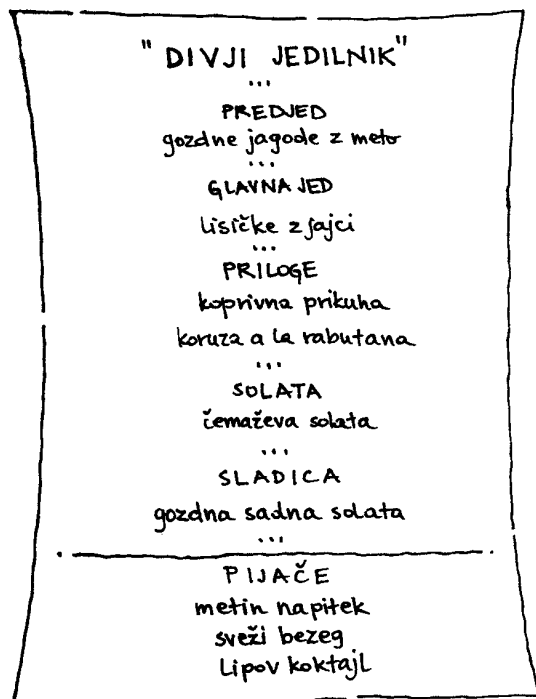 "DIVJI JEDILNIK"
...
PREDJED
gozdne jagode z meto
...
GLAVNA JED
lisičke z jajci
...
PRILOGE
koprivna prikuha
koruza a la rabutana
...
SOLATA
čemaževa solata
...
SLADICA
gozdna sadna solata
...
PIJAČE
metin napitek
sveži bezeg
Lipov koktajl